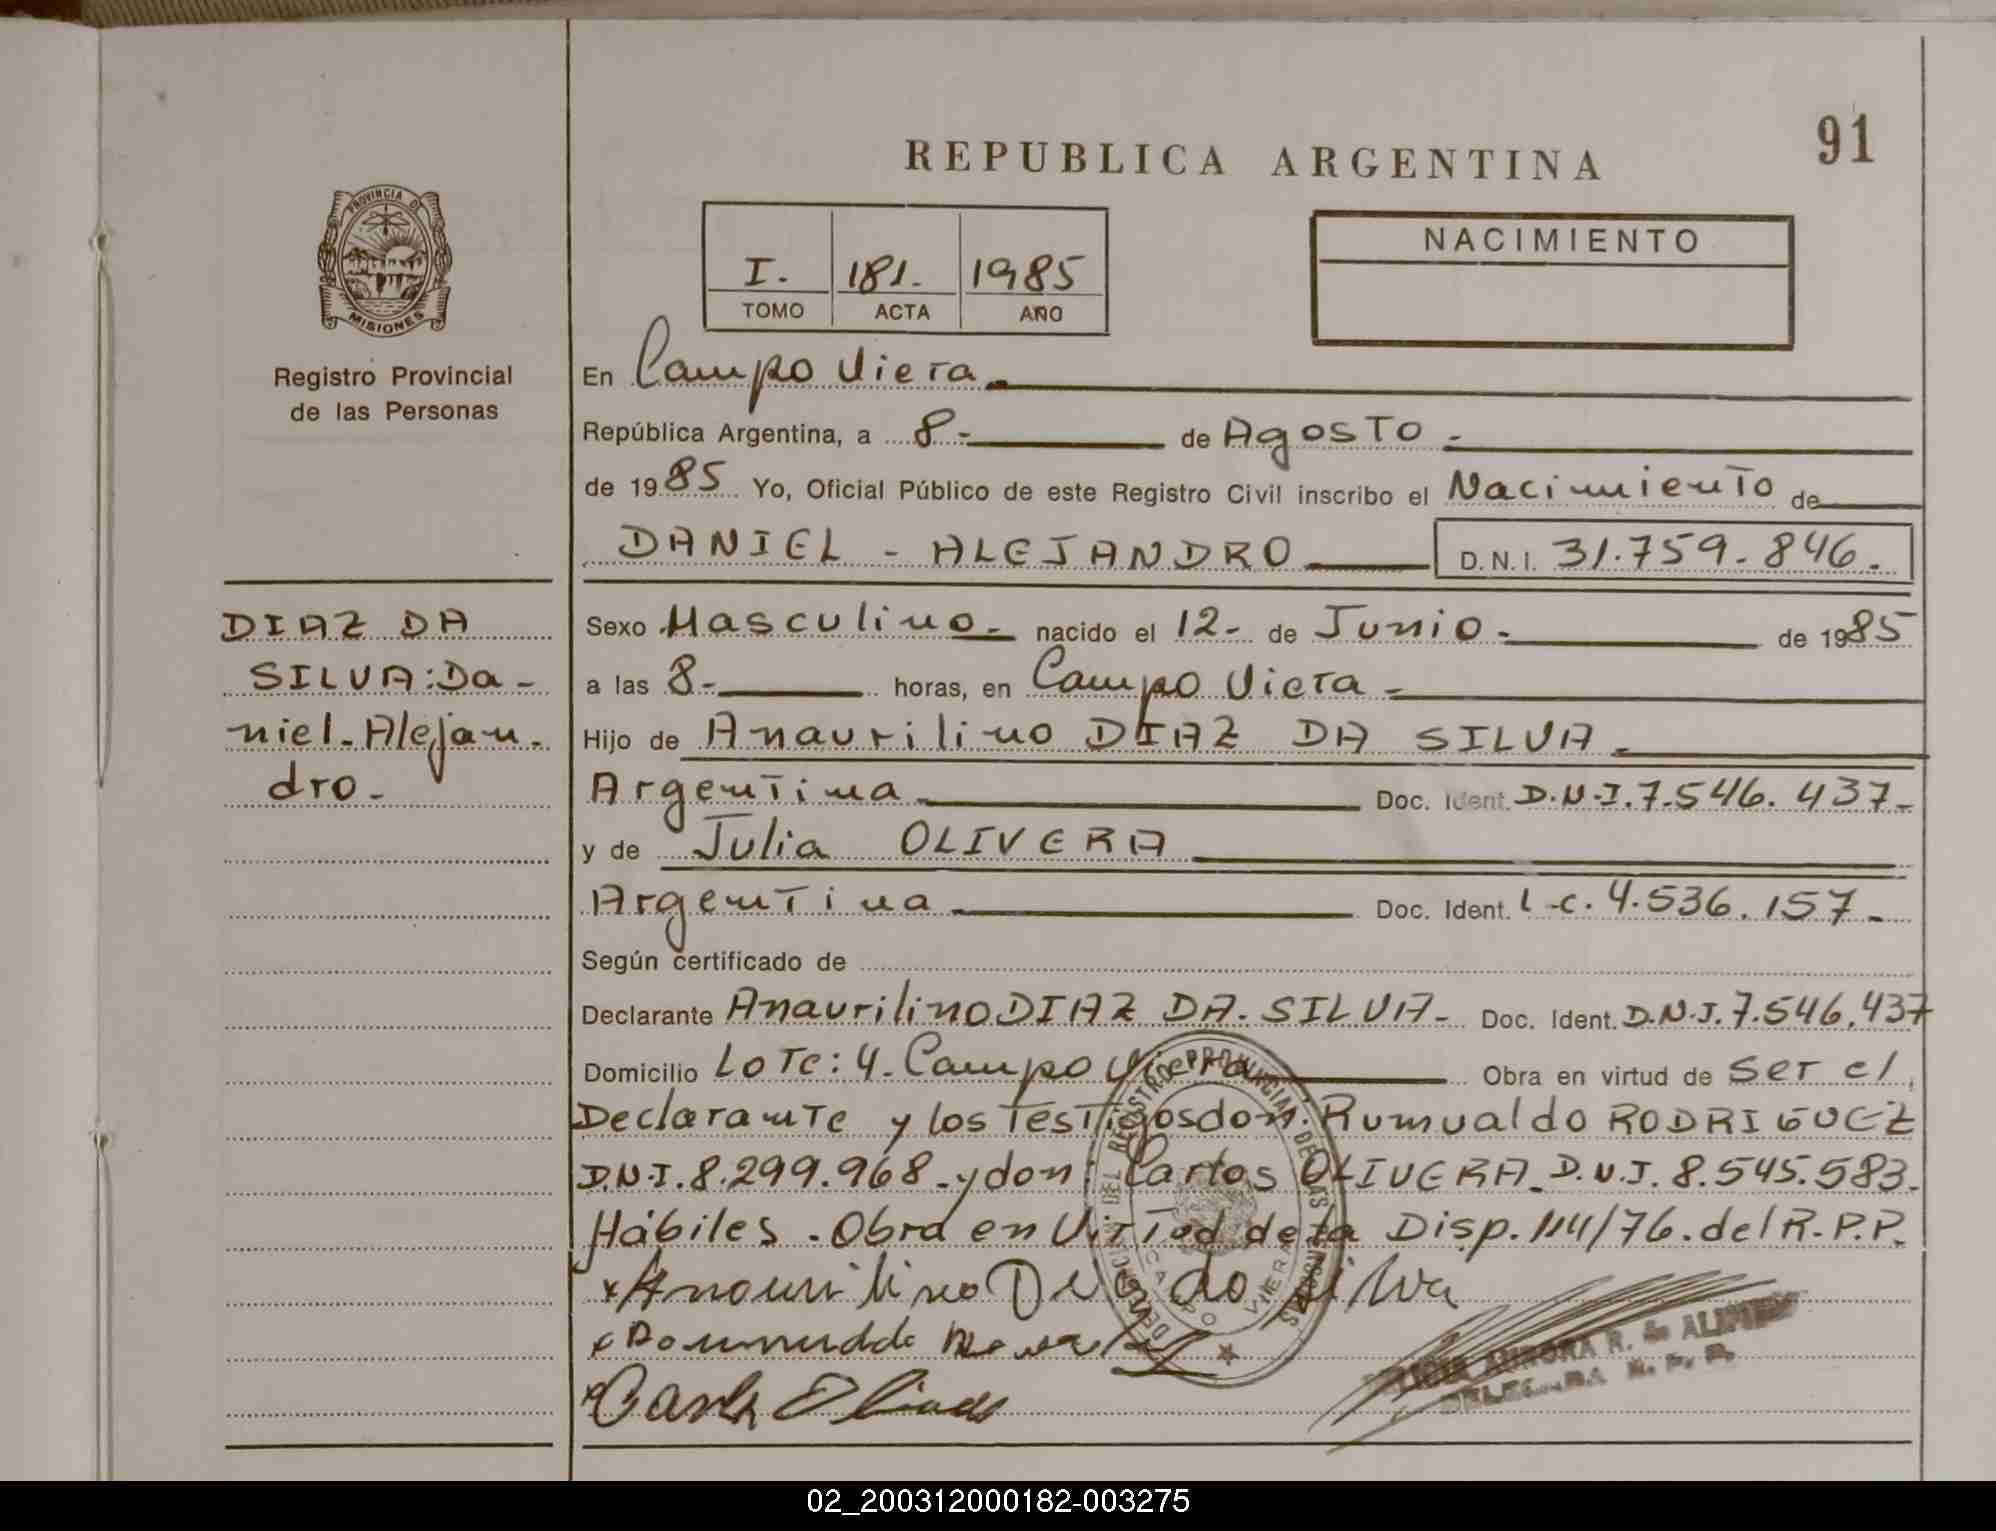 91
REPUBLICA ARGENTINA
PROVINCIA DE
MISIONES
Registro Provincial
de las Personas
I. 181. 1985
TOMO ACTA AÑO
NACIMIENTO
En Campo Viera
República Argentina, a 8- de Agosto -
de 1985 Yo, Oficial Público de este Registro Civil inscribo el Nacimiento de
DANIEL - ALEJANDRO D.N.I. 31.759.846.
DIAZ DA
SILVA: Da-
niel-Alejan-
dro-
Sexo Masculino- nacido el 12- de Junio - de 1985
a las 8- horas, en Campo Viera -
Hijo de Anaurilino DIAZ DA SILVA -
Argentina Doc. Ident. D.N.I. 7.546.437-
y de Julia OLIVERA
Argentina Doc. Ident. L.C. 4.536.157-
Según certificado de
Declarante Anaurilino DIAZ DA SILVA- Doc. Ident. D.N.I. 7.546.437
Domicilio Lote: 4. Campo Viera Obra en virtud de ser el
Declarante y los Testigos don: Rumualdo RODRIGUEZ
D.N.I. 8.299.968-y don: Carlos OLIVERA D.N.I. 8.545.583.
Hábiles. Obra en Virtud de la Disp. 114/76. del R.P.P.
DELEGACION DEL REGISTRO PROVINCIAL DE LAS PERSONAS
CAMPO VIERA
AURORA R. de
02_200312000182-003275